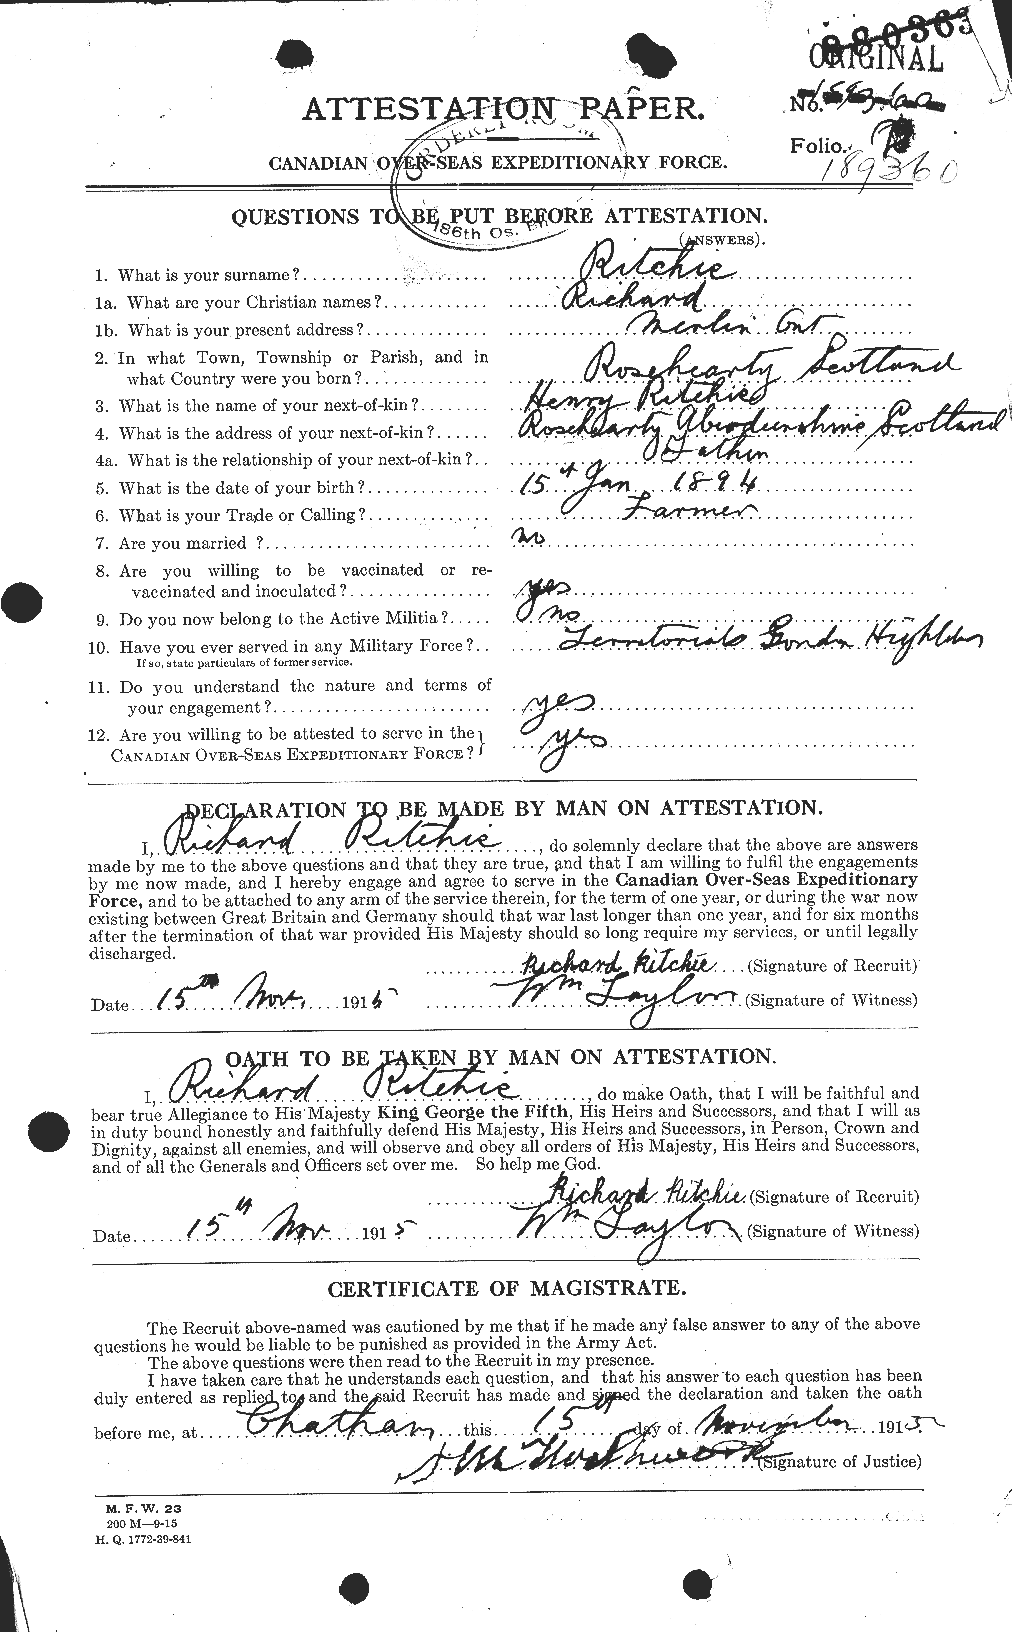 880363
ORIGINAL
ATTESTATION PAPER.
No.
Folio.
189360
CANADIAN OVER-SEAS EXPEDITIONARY FORCE.
ORDERLY ROOM
186th Os. Bn.
QUESTIONS TO BE PUT BEFORE ATTESTATION.
(ANSWERS).
1. What is your surname? Ritchie
1a. What are your Christian names? Richard
1b. What is your present address? Merlin Ont
2. In what Town, Township or Parish, and in
what Country were you born? Rosehearty Scotland
3. What is the name of your next-of-kin? Henry Ritchie
4. What is the address of your next-of-kin? Rosehearty Aberdeenshire Scotland
4a. What is the relationship of your next-of-kin? Father
5. What is the date of your birth? 15th Jan 1894
6. What is your Trade or Calling? Farmer
7. Are you married ? no
8. Are you willing to be vaccinated or re-
vaccinated and inoculated? yes
9. Do you now belong to the Active Militia? no
10. Have you ever served in any Military Force? Territorials Gordon
If so, state particulars of former service.
11. Do you understand the nature and terms of
your engagement? yes
12. Are you willing to be attested to serve in the
CANADIAN OVER-SEAS EXPEDITIONARY FORCE? yes
DECLARATION TO BE MADE BY MAN ON ATTESTATION.
I, Richard Ritchie, do solemnly declare that the above are answers
made by me to the above questions and that they are true, and that I am willing to fulfil the engagements
by me now made, and I hereby engage and agree to serve in the Canadian Over-Seas Expeditionary
Force, and to be attached to any arm of the service therein, for the term of one year, or during the war now
existing between Great Britain and Germany should that war last longer than one year, and for six months
after the termination of that war provided His Majesty should so long require my services, or until legally
discharged.
Richard Ritchie (Signature of Recruit)
Date 15th Nov. 1915 Wm Taylor (Signature of Witness)
OATH TO BE TAKEN BY MAN ON ATTESTATION.
I, Richard Ritchie, do make Oath, that I will be faithful and
bear true Allegiance to His Majesty King George the Fifth, His Heirs and Successors, and that I will as
in duty bound honestly and faithfully defend His Majesty, His Heirs and Successors, in Person, Crown and
Dignity, against all enemies, and will observe and obey all orders of His Majesty, His Heirs and Successors,
and of all the Generals and Officers set over me. So help me God.
Richard Ritchie (Signature of Recruit)
Date 15th Nov 1915 Wm Taylor (Signature of Witness)
CERTIFICATE OF MAGISTRATE.
The Recruit above-named was cautioned by me that if he made any false answer to any of the above
questions he would be liable to be punished as provided in the Army Act.
The above questions were then read to the Recruit in my presence.
I have taken care that he understands each question, and that his answer to each question has been
duly entered as replied to, and the said Recruit has made and signed the declaration and taken the oath
before me, at Chatham this 15th day of November 1915
(Signature of Justice)
M. F. W. 23
200 M—9-15
H. Q. 1772-39-841